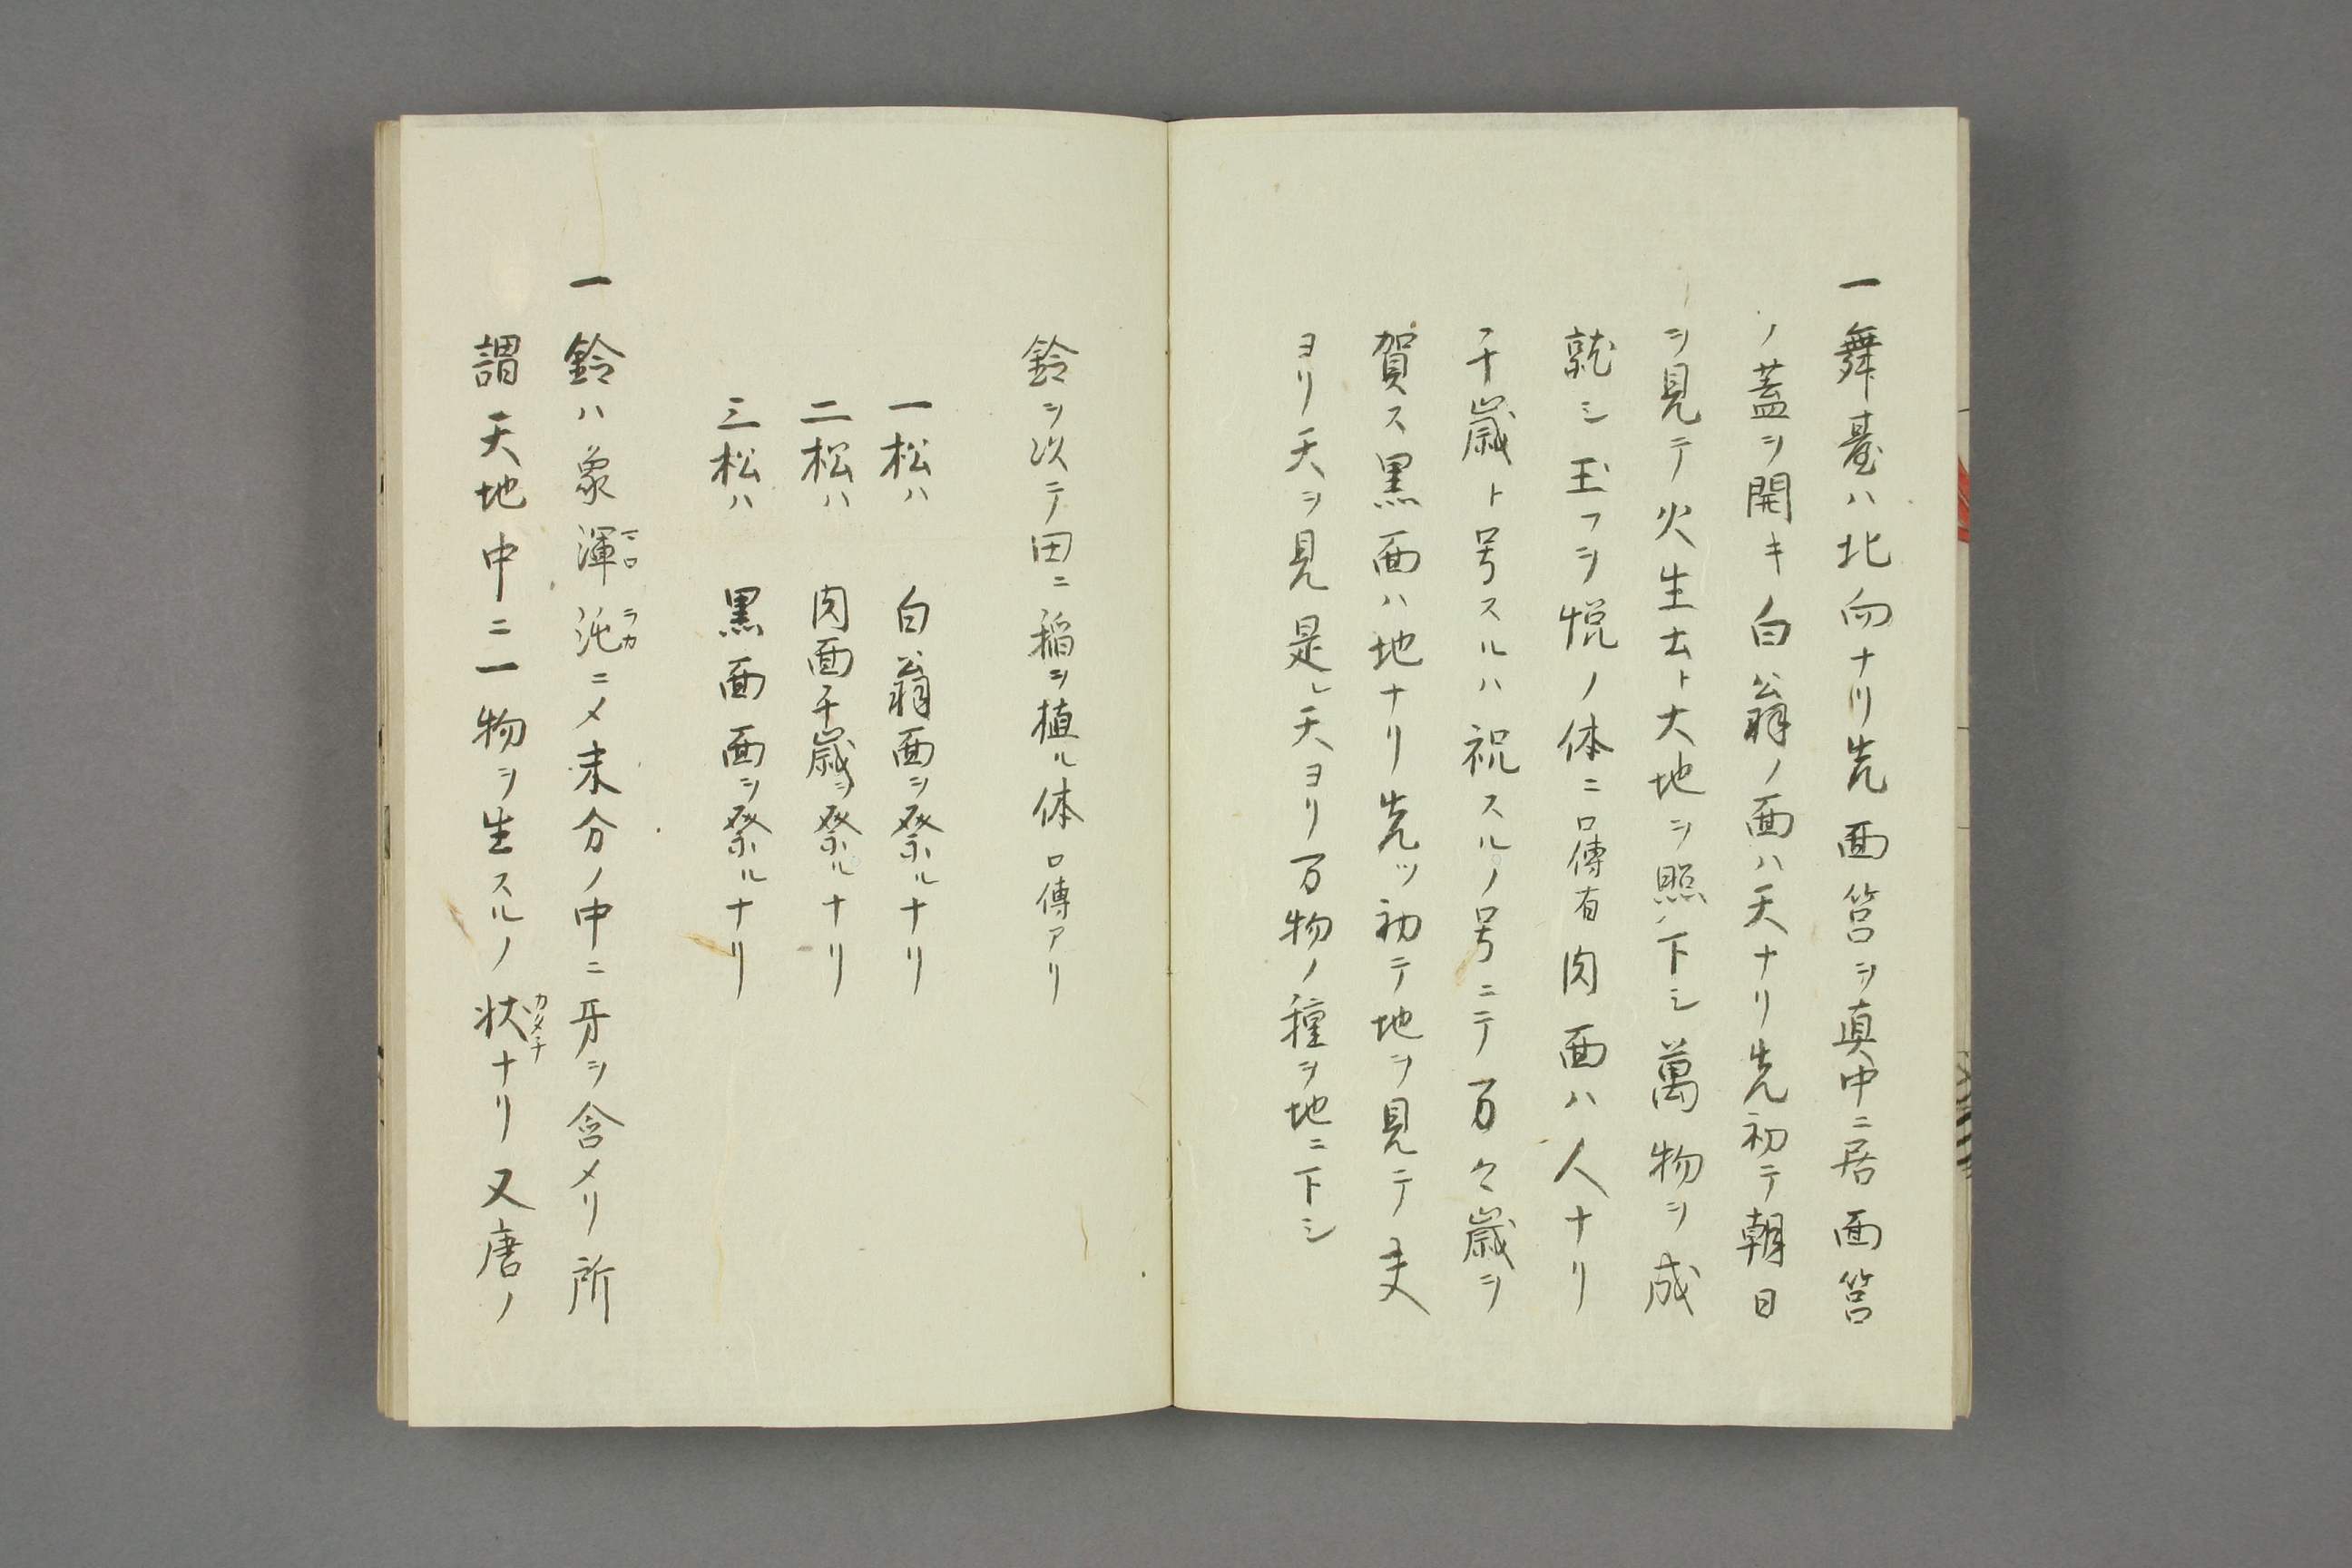 一舞臺ハ北向ナリ先面筥ヲ真中ニ居面筥
ノ蓋ヲ開キ白翁ノ面ハ天ナリ先初テ朝日
ヲ見テ火生土ト大地ヲ照ノ下シ萬物ヲ成
就シ玉フヲ悦ノ体ニ口傳有肉面ハ人ナリ
千歳ト号スルハ祝スルノ号ニテ万々歳ヲ
賀ス黒面ハ地ナリ先ツ初テ地ヲ見テ夫
ヨリ天ヲ見是レ天ヨリ万物ノ種ヲ地ニ下シ
鈴ヲ次テ田ニ稲ヲ植ル体口傳アリ
一松ハ 白翁面ヲ祭ルナリ
二松ハ 肉面千歳ヲ祭ルナリ
三松ハ 黒面面ヲ祭ルナリ
一鈴ハ象渾沌ニメ未分ノ中ニ牙ヲ含メリ所
マロ ラカ
謂天地中ニ一物ヲ生スルノ状ナリ又唐ノ
カタチ